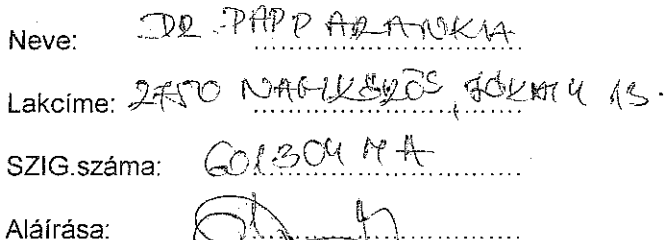 Neve: DR. PAPP ARANKA
Lakcíme: 2750 NAGYKŐRÖS, JÓKAI U 13.
SZIG.száma: 601304 MA
Aláírása: